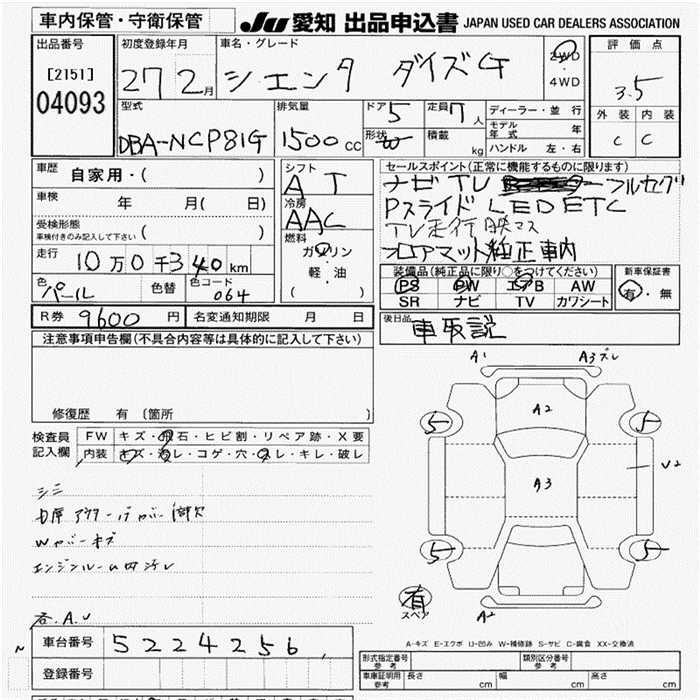 車内保管・守衛保管 JU 愛知 出品申込書 JAPAN USED CAR DEALERS ASSOCIATION
出品番号 初度登録年月 車名・グレード 評価点
[2151] 27 2月 シエンタ ダイズG 2WD・4WD 3.5
04093 外装 内装
型式 排気量 ドア 5 定員 7人 ディーラー・並行 C C
モデル年式 年
DBA-NCP81G 1500cc 形状 W 積載 kg ハンドル 左・右
車歴 自家用・( ) シフト AT セールスポイント(正常に機能するものに限ります)
車検 年 月( 日) 冷房 AAC ナビTV フルセグ
受検形態 Pスライド LED ETC
車検付きのみ記入して下さい ( ) 燃料 TV走行映マス
走行 10万0千340km ガソリン フロアマット純正車内
軽・油 装備品(純正品に限り○をつけてください) 新車保証書
色 パール 色替 色コード 064 ( ) PS PW エアB AW 有・無
SR ナビ TV カワシート
R券 9600円 名変通知期限 月 日 後日品 車取説
注意事項申告欄(不具合内容等は具体的に記入して下さい)
A1 A3ズレ
修復歴 有 〔箇所 〕 A2
検査員記入欄 FW キズ・飛石・ヒビ割・リペア跡・X要 5 5
内装 キズ・汚レ・コゲ・穴・スレ・キレ・破レ
A3 U2
シミ
Wカバーキズ
エンジンルーム内汚レ 5 5
有
スペア A2
各.A.U
車台番号 5224256 A-キズ E-エクボ U-凹み W-補修跡 S-サビ C-腐食 XX-交換済
型式指定番号 参考 類別区分番号 参考
登録番号 車庫証明用 参考 長さ cm 幅 cm 高さ cm